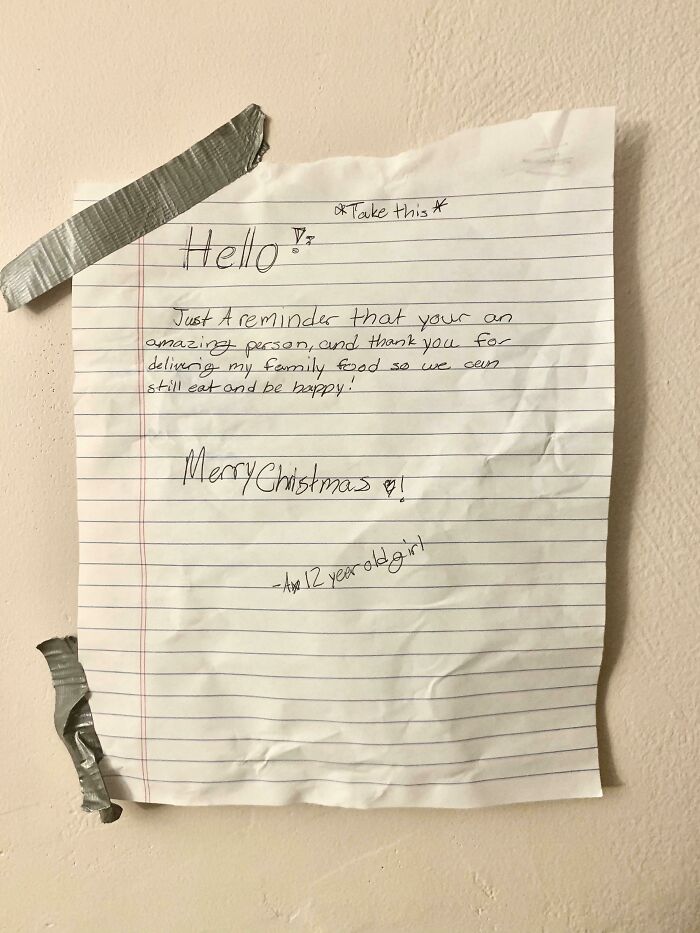 *Take this*
Hello!!
Just A reminder that your an
amazing person, and thank you for
deliverig my family food so we can
still eat and be happy!
Merry Christmas !
-A 12 year old girl